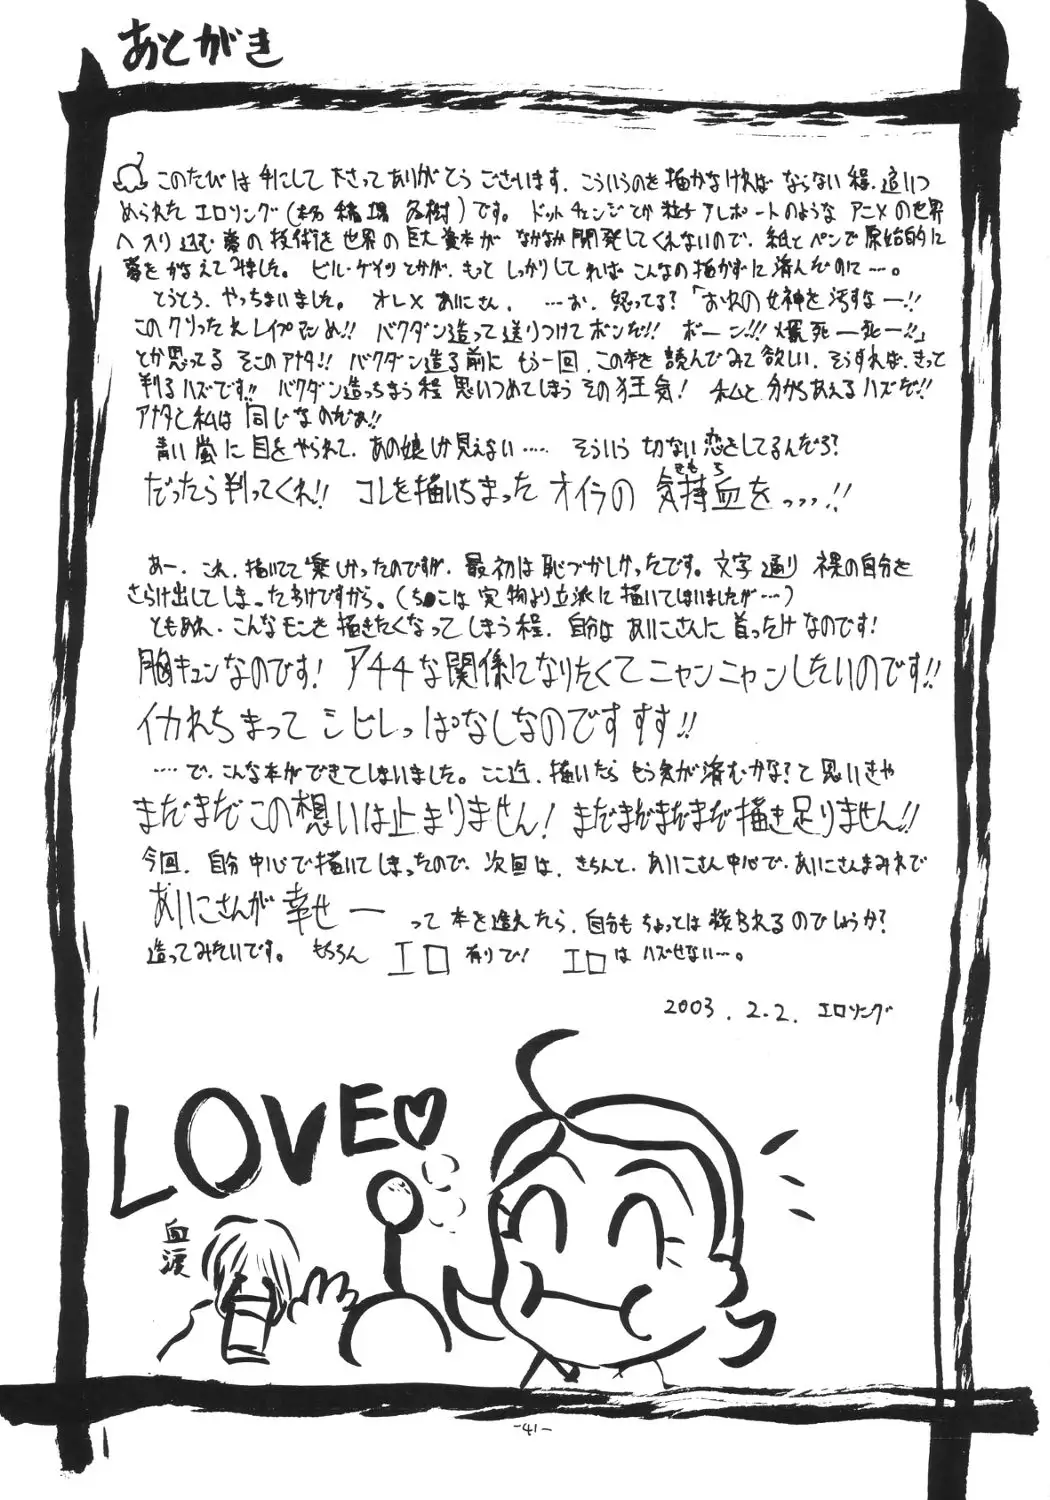 あとがき
このたびは手にして下さってありがとうございます、こういうのを描かなければならない程、追いつ
められたエロソング()です。ドットチェンジとか粒子アレポートのようなアニメの世界
へ入り込む夢の技術を世界の巨大資本がなかなか開発してくれないので、紙とペンで原始的に
夢をかなえてみました。ビル・ゲイツとかが、もっとしっかりしてればこんなの描かずに済んだのに…。
とうとう、やっちまいました。オレ×あにさん、…お、怒ってる?「おれの女神を汚すなー!!
このクソったれレイプマンめ!!バクダン造って送りつけてボンだ!!ボーン!!!爆死ー死ー!!」
とか思ってるそこのアナタ!!バクダン造る前にもう一回、この本を読んでみて欲しい、そうすれば、きっと
判るハズです!!バクダン造っちまう程思いつめてしまうその狂気!私と分かちあえるハズだ!!
アナタと私は同じなのだぁ!!
青い嵐に目をやられて、あの娘しか見えない……そういう切ない恋をしてるんだろ?
だったら判ってくれ!!コレを描いちまったオイラの気持血をっ,,,!!
きもち
あー、これ、描いてて楽しかったのですが、最初は恥づかしかったです。文字通り裸の自分を
さらけ出してしまったわけですから。(ち●こは実物より立派に描いてしまいましたが…)
ともあれ、こんなモンを描きたくなってしまう程、自分はあいにこさんに首ったけなのです!
胸キュンなのです!アチチな関係になりたくてニャンニャンしたいのです!!
イカれちまってシビレっぱなしなのですすす!!
……で、こんな本ができてしまいました。ここ迄、描いたらもう気が済むかな?と思いきや
まだまだこの想いは止まりません!まだまだまだまだ描き足りません!!
今回、自分中心で描いてしまったので、次回は、きちんと、あいにこさん中心で、あいにこさんまみれで
あいにこさんが幸せーって本を造えたら、自分もちょっとは救われるのでしょうか?
造ってみたいです。もちろんエロ有りで!エロはハズせない…。
2003.2.2.エロソング
LOVE♡
血涙
-41-